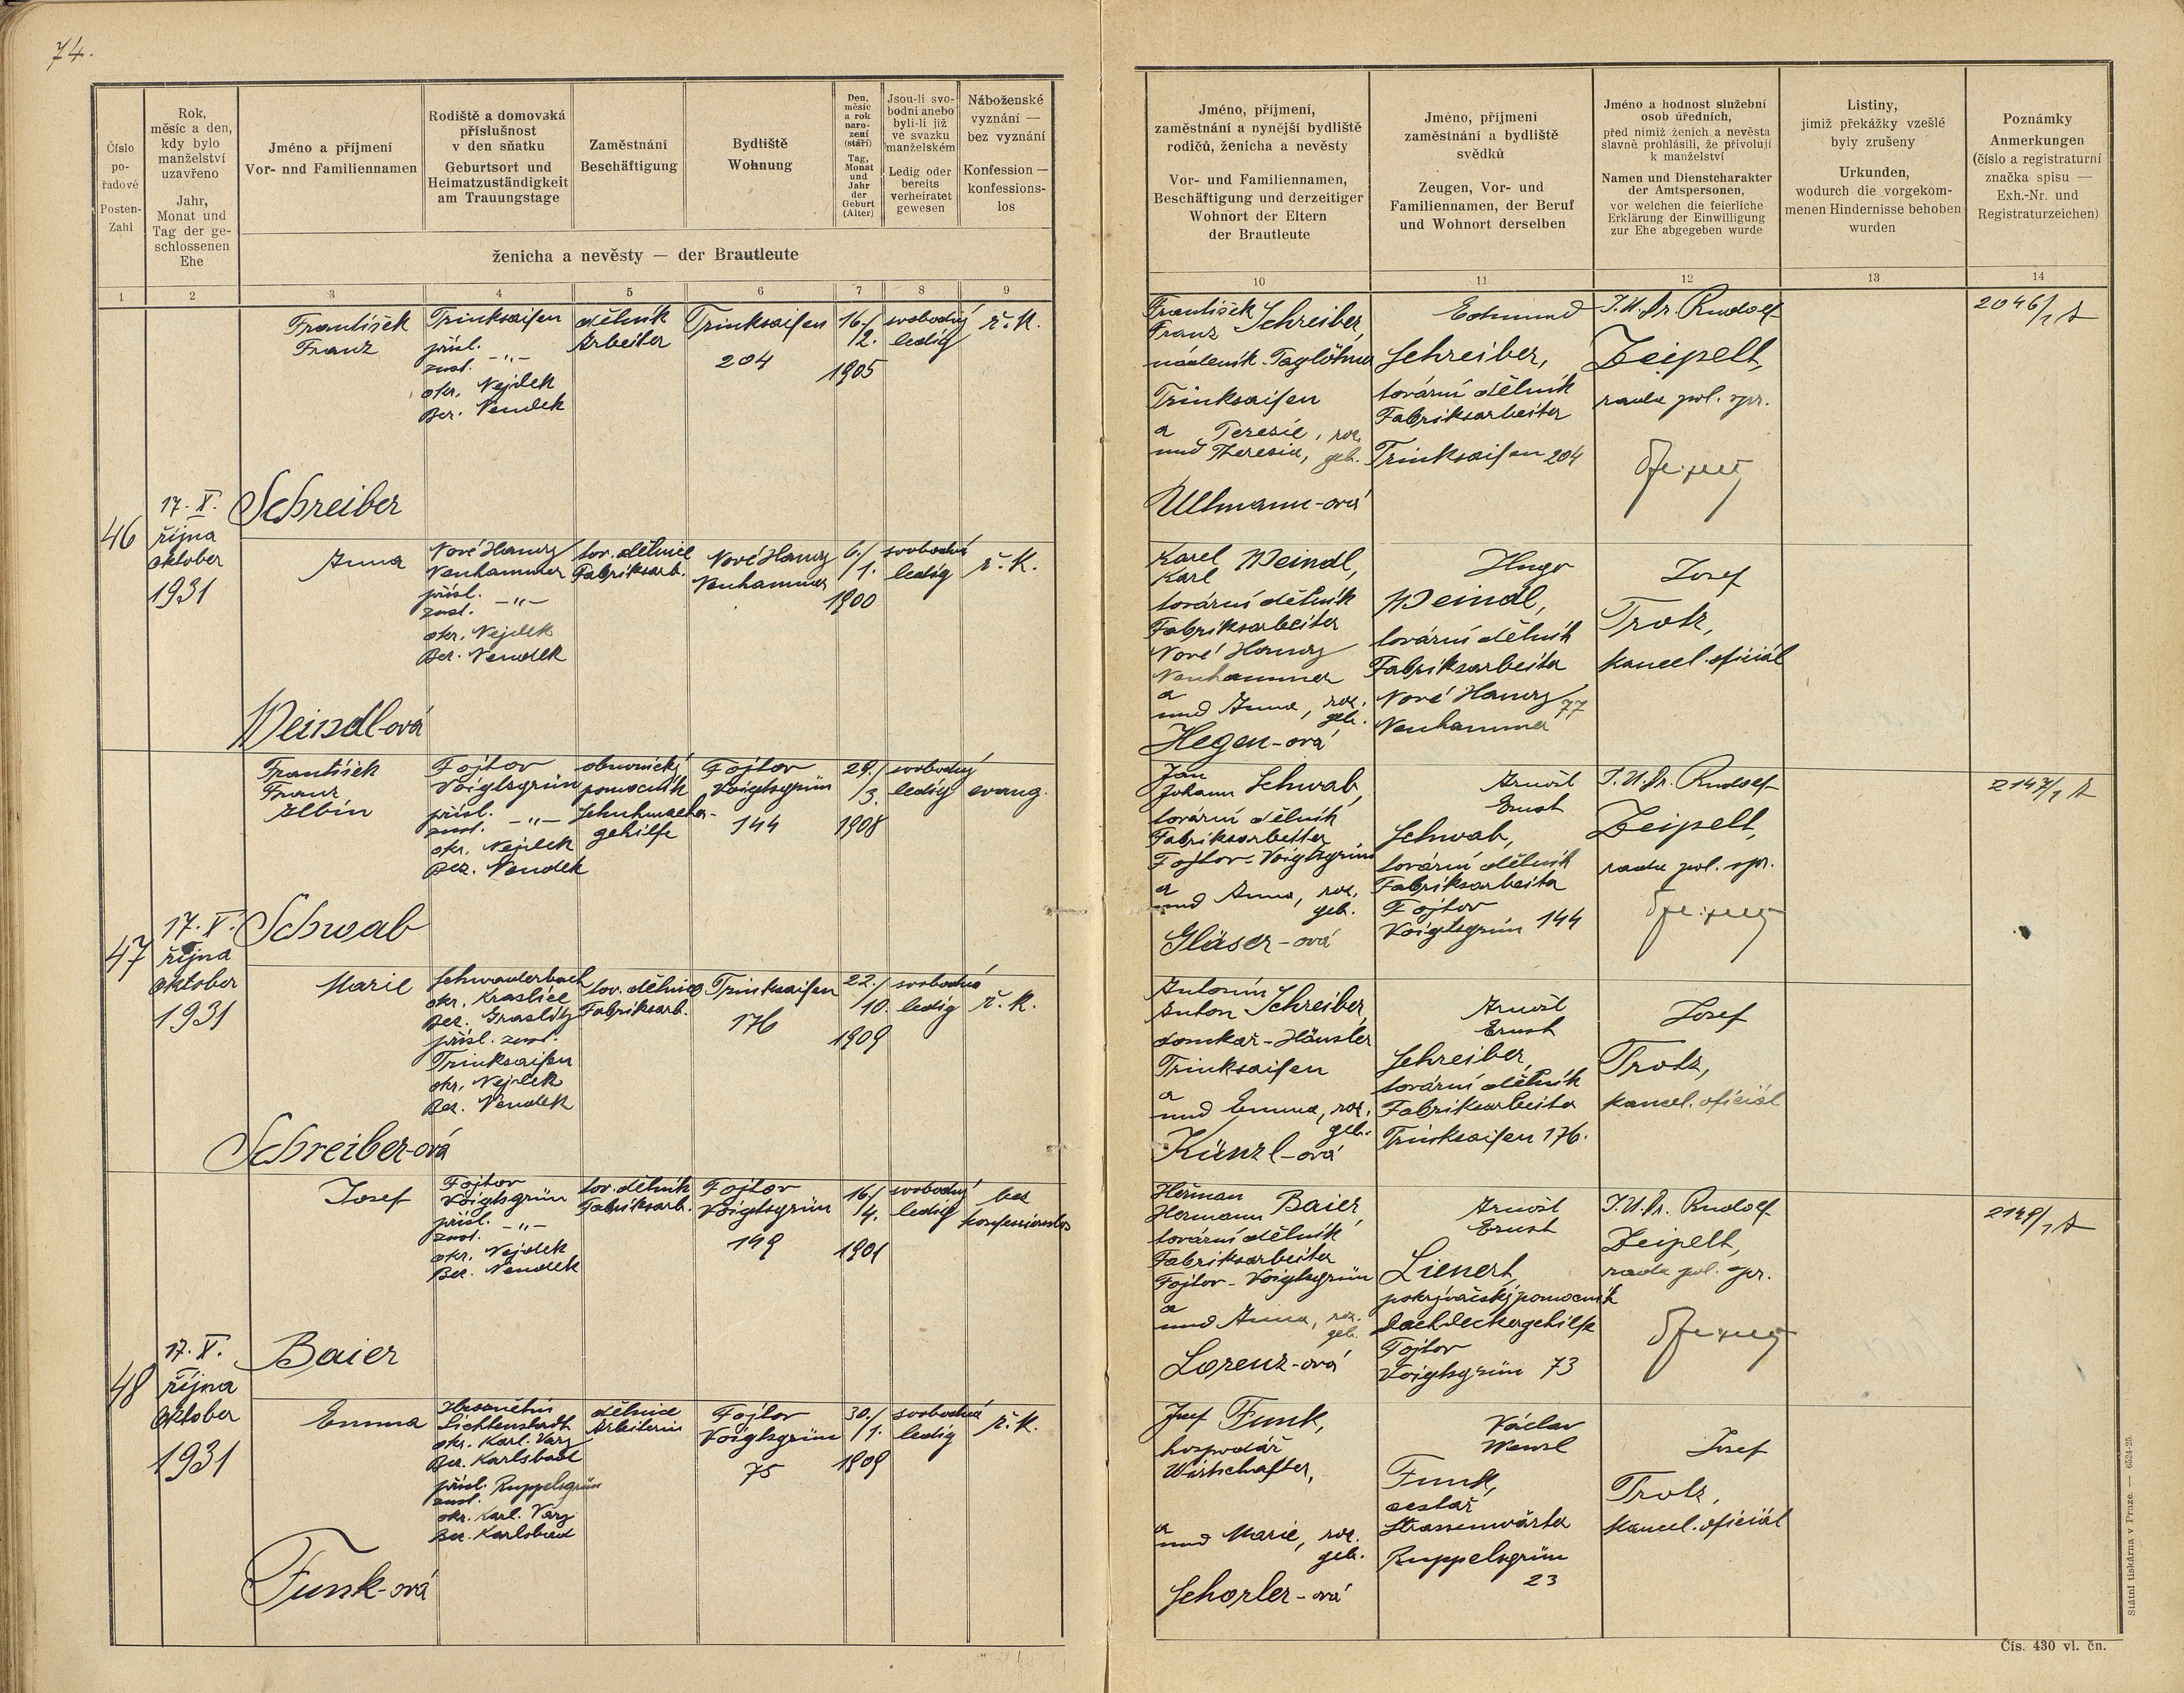 74.
Číslo
po-
řadové
Posten-
Zahl
Rok,
měsíc a den,
kdy bylo
manželství
uzavřeno
Jahr,
Monat und
Tag der ge-
schlossenen
Ehe
Jméno a příjmení
Vor- nnd Familiennamen
Rodiště a domovská
příslušnost
v den sňatku
Geburtsort und
Heimatzuständigkeit
am Trauungstage
Zaměstnání
Beschäftigung
Bydliště
Wohnung
Den,
měsíc
a rok
naro-
zení
(stáří)
Tag,
Monat
und
Jahr
der
Geburt
(Alter)
Jsou-li svo-
bodni anebo
byli-li již
ve svazku
manželském
Ledig oder
bereits
verheiratet
gewesen
Náboženské
vyznání —
bez vyznání
Konfession —
konfessions-
los
ženicha a nevěsty — der Brautleute
1 2 3 4 5 6 7 8 9
František
Franz
Schreiber
Trinksaifen
přísl.
zust. -"-
okr. Nejdek
Bez. Neudek
dělník
Arbeiter
Trinksaifen
204
16./
2.
1905
svobodný
ledig
ř. k.
46
17. X.
října
Oktober
1931
Anna
Weindl-ová
Nové Hamry
Neuhammer
přísl.
zust. -"-
okr. Nejdek
Bez. Neudek
tov. dělnice
Fabriksarb.
Nové Hamry
Neuhammer
6./
/1.
1900
svobodná
ledig
ř. k.
František
Franz
Albin
Schwab
Fojtov
Voigtsgrün
přísl.
zust. -"-
okr. Nejdek
Bez. Neudek
obuvnický
pomocník
Schuhmacher-
gehilfe
Fojtov
Voigtsgrün
144
29./
/3.
1908
svobodný
ledig
evang.
47
17. X.
října
Oktober
1931
Marie
Schreiber-ová
Schwaderbach
okr. Kraslice
Bez. Graslitz
přísl. zust.
Trinksaifen
okr. Nejdek
Bez. Neudek
tov. dělnice
Fabriksarb.
Trinksaifen
176
22./
10.
1909
svobodná
ledig
ř. k.
Josef
Baier
Fojtov
Voigtsgrün
přísl.
zust. -"-
okr. Nejdek
Bez. Neudek
tov. dělník
Fabriksarb.
Fojtov
Voigtsgrün
149
16./
/4.
1901
svobodný
ledig
bez
konfessionslos
48
17. X.
října
Oktober
1931
Emma
Funk-ová
Lichtenstadt
okr. Karl. Vary
Bez. Karlsbad
přísl. Ruppelsgrün
zust.
okr. Karl. Vary
Bez. Karlsbad
dělnice
Arbeiterin
Fojtov
Voigtsgrün
75
30./
/1.
1909
svobodná
ledig
ř. k.
Jméno, příjmení,
zaměstnání a nynější bydliště
rodičů, ženicha a nevěsty
Vor- und Familiennamen,
Beschäftigung und derzeitiger
Wohnort der Eltern
der Brautleute
Jméno, příjmení
zaměstnání a bydliště
svědků
Zeugen, Vor- und
Familiennamen, der Beruf
und Wohnort derselben
Jméno a hodnost služební
osob úředních,
před nimiž ženich a nevěsta
slavně prohlásili, že přivolují
k manželství
Namen und Dienstcharakter
der Amtspersonen,
vor welchen die feierliche
Erklärung der Einwilligung
zur Ehe abgegeben wurde
Listiny,
jimiž překážky vzešlé
byly zrušeny
Urkunden,
wodurch die vorgekom-
menen Hindernisse behoben
wurden
Poznámky
Anmerkungen
(číslo a registraturní
značka spisu —
Exh.-Nr. und
Registraturzeichen)
10 11 12 13 14
František
Franz Schreiber,
nádeník - Taglöhner
Trinksaifen
a Terezie, roz.
und Theresia, geb.
Ullmann-ová
Edmund
Schreiber,
tovární dělník
Fabriksarbeiter
Trinksaifen 204
J. U. Dr. Rudolf
Zeipelt,
rada pol. spr.
2046/1
Karel
Karl Weindl,
tovární dělník
Fabriksarbeiter
Nové Hamry
Neuhammer
a
und Anna, roz.
geb.
Hegen-ová
Hugo
Weindl,
tovární dělník
Fabriksarbeiter
Nové Hamry
77
Neuhammer
Josef
Trotz,
kancel. oficiál
Jan
Johann Schwab,
tovární dělník
Fabriksarbeiter
Fojtov - Voigtsgrün
a
und Anna, roz.
geb.
Gläser-ová
Arnošt
Ernst
Schwab,
tovární dělník
Fabriksarbeiter
Fojtov
Voigtsgrün 144
J. U. Dr. Rudolf
Zeipelt,
rada pol. spr.
2147/1
Antonín
Anton Schreiber,
domkář - Häusler
Trinksaifen
a
und Emma, roz.
geb.
Künzl-ová
Arnošt
Ernst
Schreiber,
tovární dělník
Fabriksarbeiter
Trinksaifen 176.
Josef
Trotz,
kancel. oficiál
Heřman
Hermann Baier,
tovární dělník
Fabriksarbeiter
Fojtov - Voigtsgrün
a
und Anna, roz.
geb.
Lorenz-ová
Arnošt
Ernst
Lienert,
pokrývačský pomocník
Dachdeckergehilfe
Fojtov
Voigtsgrün 73
J. U. Dr. Rudolf
Zeipelt,
rada pol. spr.
2149/1
Josef Funk,
hospodář
Wirtschafter,
a
und Marie, roz.
geb.
Schorler-ová
Václav
Wenzl
Funk,
cestář
Strassenwärter
Ruppelsgrün
23
Josef
Trotz,
kancel. oficiál
Státní tiskárna v Praze. — 6524-25.
Čís. 430 vl. čn.